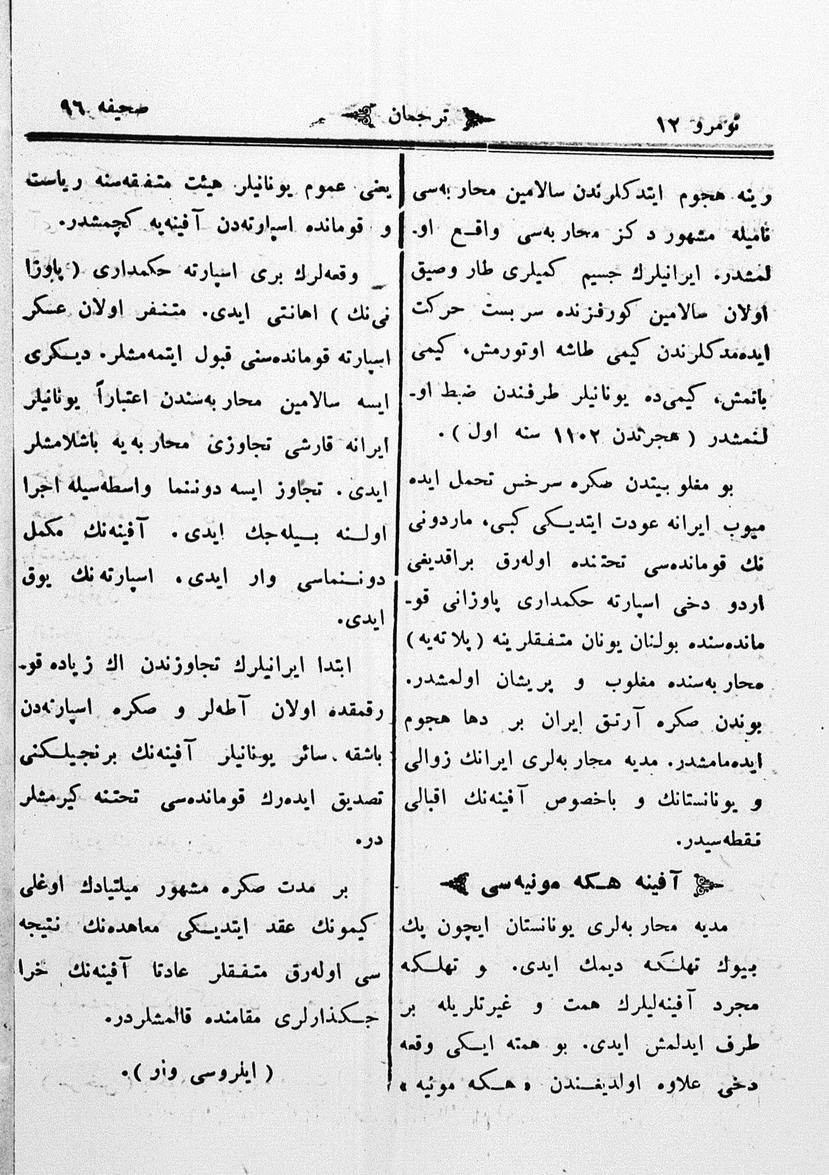 نومرو ١٢
ترجمان
صحیفه ٩٦
رینه هجوم ایتدکلرندن سالامین محاربه‌سی
نامیله مشهور دکز محاربه‌سی واقع او-
لمشدر. ایرانیلرك جسیم کمیلری طار وصیق
اولان سالامین کورفزنده سربست حرکت
ایده‌مدکلرندن کیمی طاشه اوتورمش، کیمی
باتمش، کیمی‌ده یونانیلر طرفندن ضبط او-
لنمشدر (هجرتدن ١١٠٢ سنه اول).
بو مغلوبیتدن صکره سرخس تحمل ایده
میوب ایرانه عودت ایتدیکی کبی، ماردونی
نك قوماندەسی تحتنده اوله‌رق براقدیغی
اردو دخی اسپارته حکمداری پاوزانی قو-
ماندەسنده بولنان یونان متفقلرینه (پلاته‌یه)
محاربه‌سنده مغلوب و پریشان اولمشدر.
بوندن صکره آرتق ایران بر دها هجوم
ایده‌مامشدر. مدیه محاربه‌لری ایرانك زوالی
و یونانستانك و باخصوص آفینه‌نك اقبالی
نقطه‌سیدر.
آفینه هکه مونیه‌سی
مدیه محاربه‌لری یونانستان ایچون پك
بیوك تهلکه دیمك ایدی. و تهلکه
مجرد آفینه‌لیلرك همت و غیرتلریله بر
طرف ایدلمش ایدی. بو همته ایکی وقعه
دخی علاوه اولدیغندن «هکه موئیه»
یعنی عموم یونانیلر هیئت متفقه‌سنه ریاست
و قوماندە اسپارته‌دن آفینه‌یه کچمشدر.
وقعه‌لرك بری اسپارته حکمداری (پاوزا
نی‌نك) اهانتی ایدی. متنفر اولان عسکر
اسپارته قوماندەسنی قبول ایتمه‌مشلر. دیکری
ایسه سالامین محاربه‌سندن اعتباراً یونانیلر
ایرانه قارشی تجاوزی محاربه‌یه باشلامشلر
ایدی. تجاوز ایسه دوننما واسطه‌سیله اجرا
اولنه بیله‌جك ایدی. آفینه‌نك مکمل
دوننماسی وار ایدی، اسپارته‌نك یوق
ایدی.
ابتدا ایرانیلرك تجاوزندن اك زیاده قو-
رقمقده اولان آطه‌لر و صکره اسپارته‌دن
باشقه سائر یونانیلر آفینه‌نك برنجیلکنی
تصدیق ایده‌رك قوماندەسی تحتنه کیرمشلر
در.
بر مدت صکره مشهور میلتیادك اوغلی
کیمونك عقد ایتدیکی معاهده‌نك نتیجه
سی اوله‌رق متفقلر عادتا آفینه‌نك خرا
جکذارلری مقامنده قالمشلردر.
(ایلروسی وار).